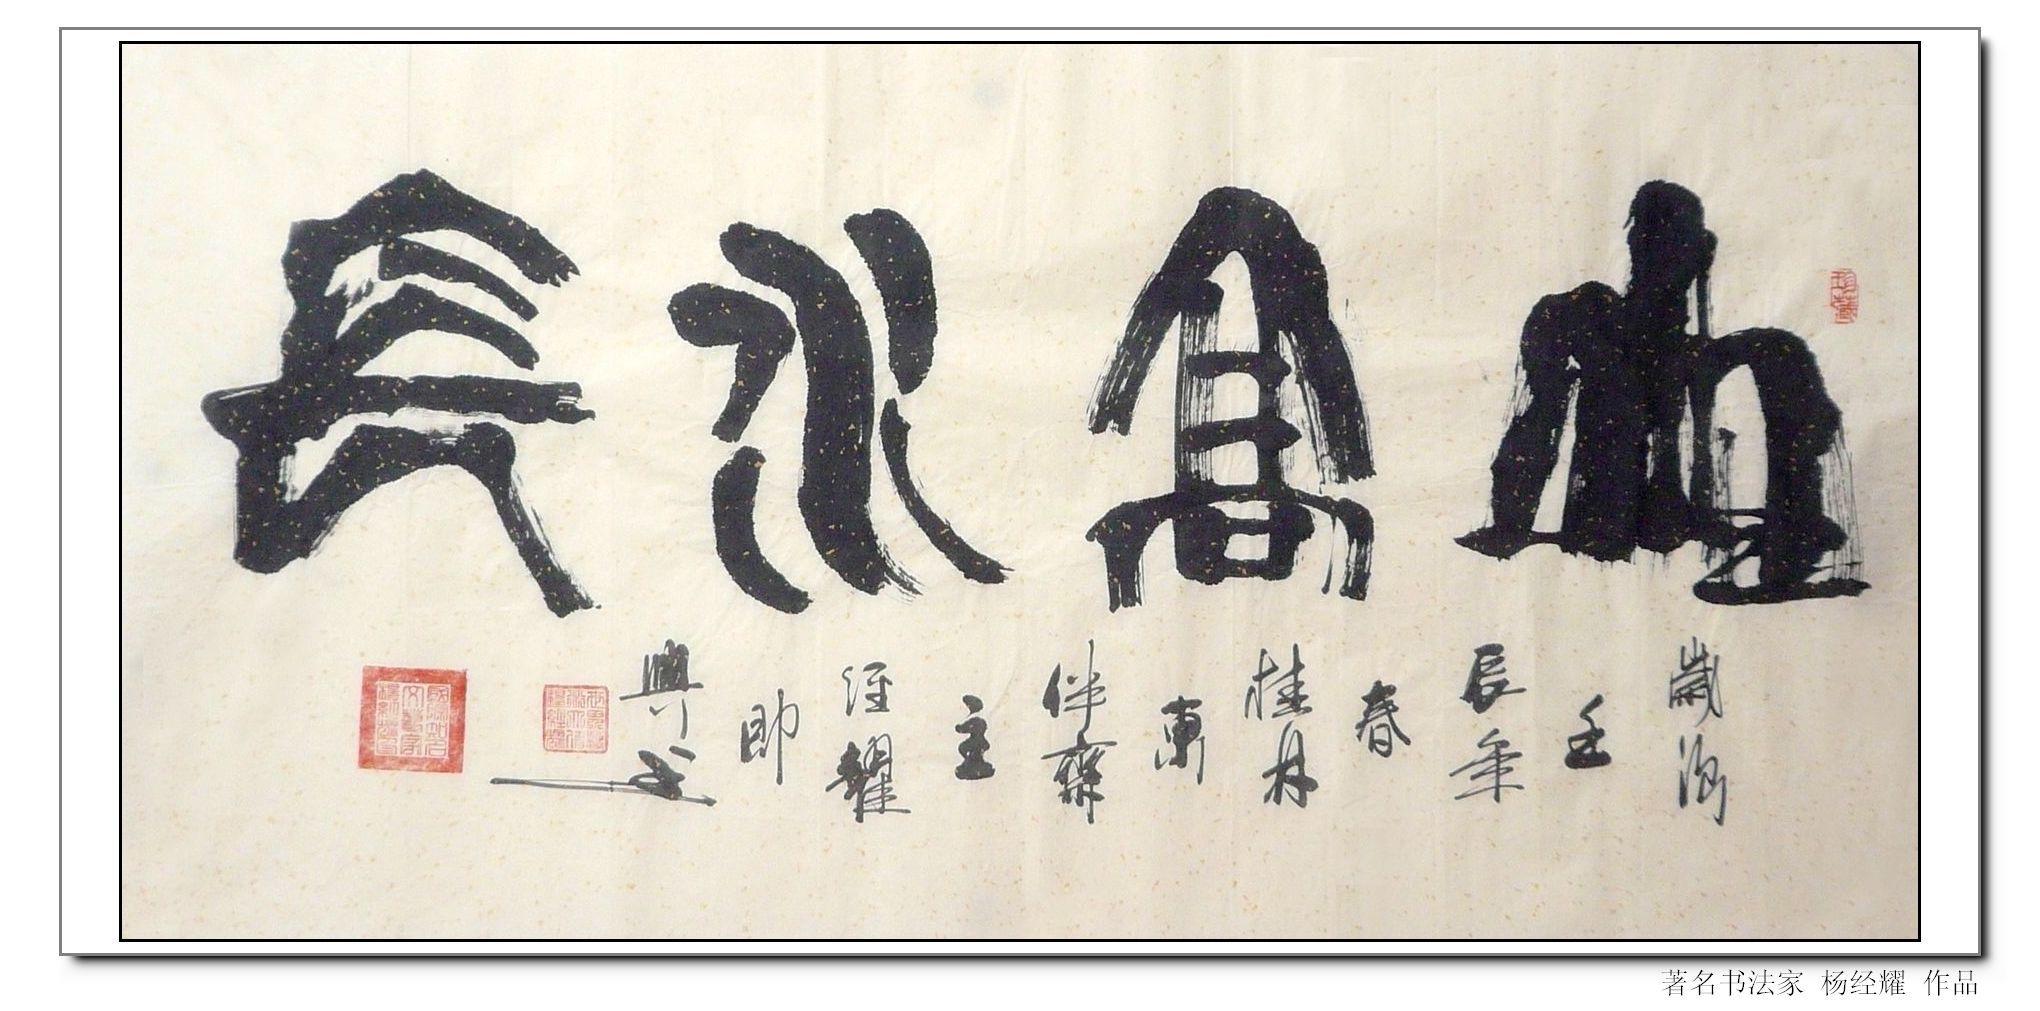 山高水長
歲次壬辰年春桂月東伴齋主經耀即興書
著名书法家 杨经耀 作品